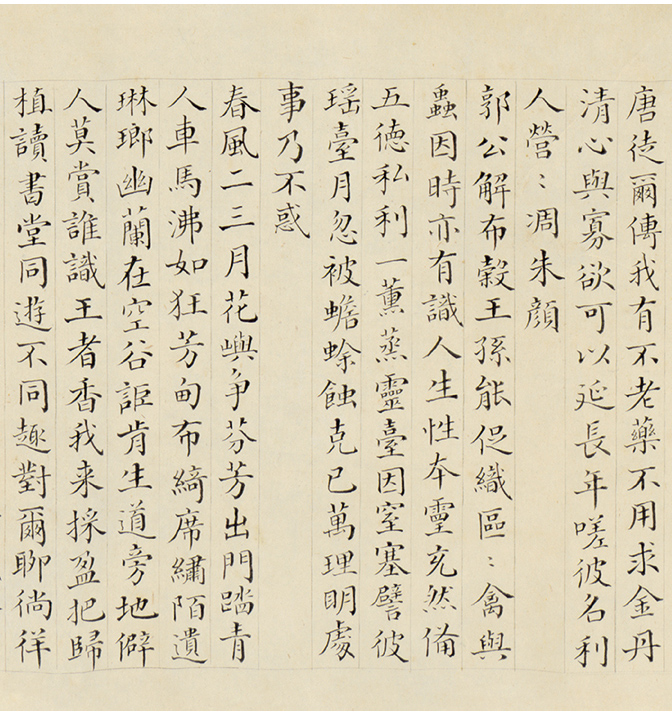 唐徒爾傳我有不老藥不用求金丹
清心與寡欲可以延長年嗟彼名利
人營〻凋朱顔
郭公解布穀王孫能促織區〻禽與
蟲因時亦有識人生性本靈充然備
五德私利一薰蒸靈臺因窒塞譬彼
瑶臺月忽被蟾蜍蝕克已萬理明處
事乃不惑
春風二三月花嶼争芬芳出門踏青
人車馬沸如狂芳甸布綺席繡陌遺
琳瑯幽蘭在空谷詎肯生道旁地僻
人莫賞誰識王者香我来採盈把歸
植讀書堂同遊不同趣對爾聊徜徉